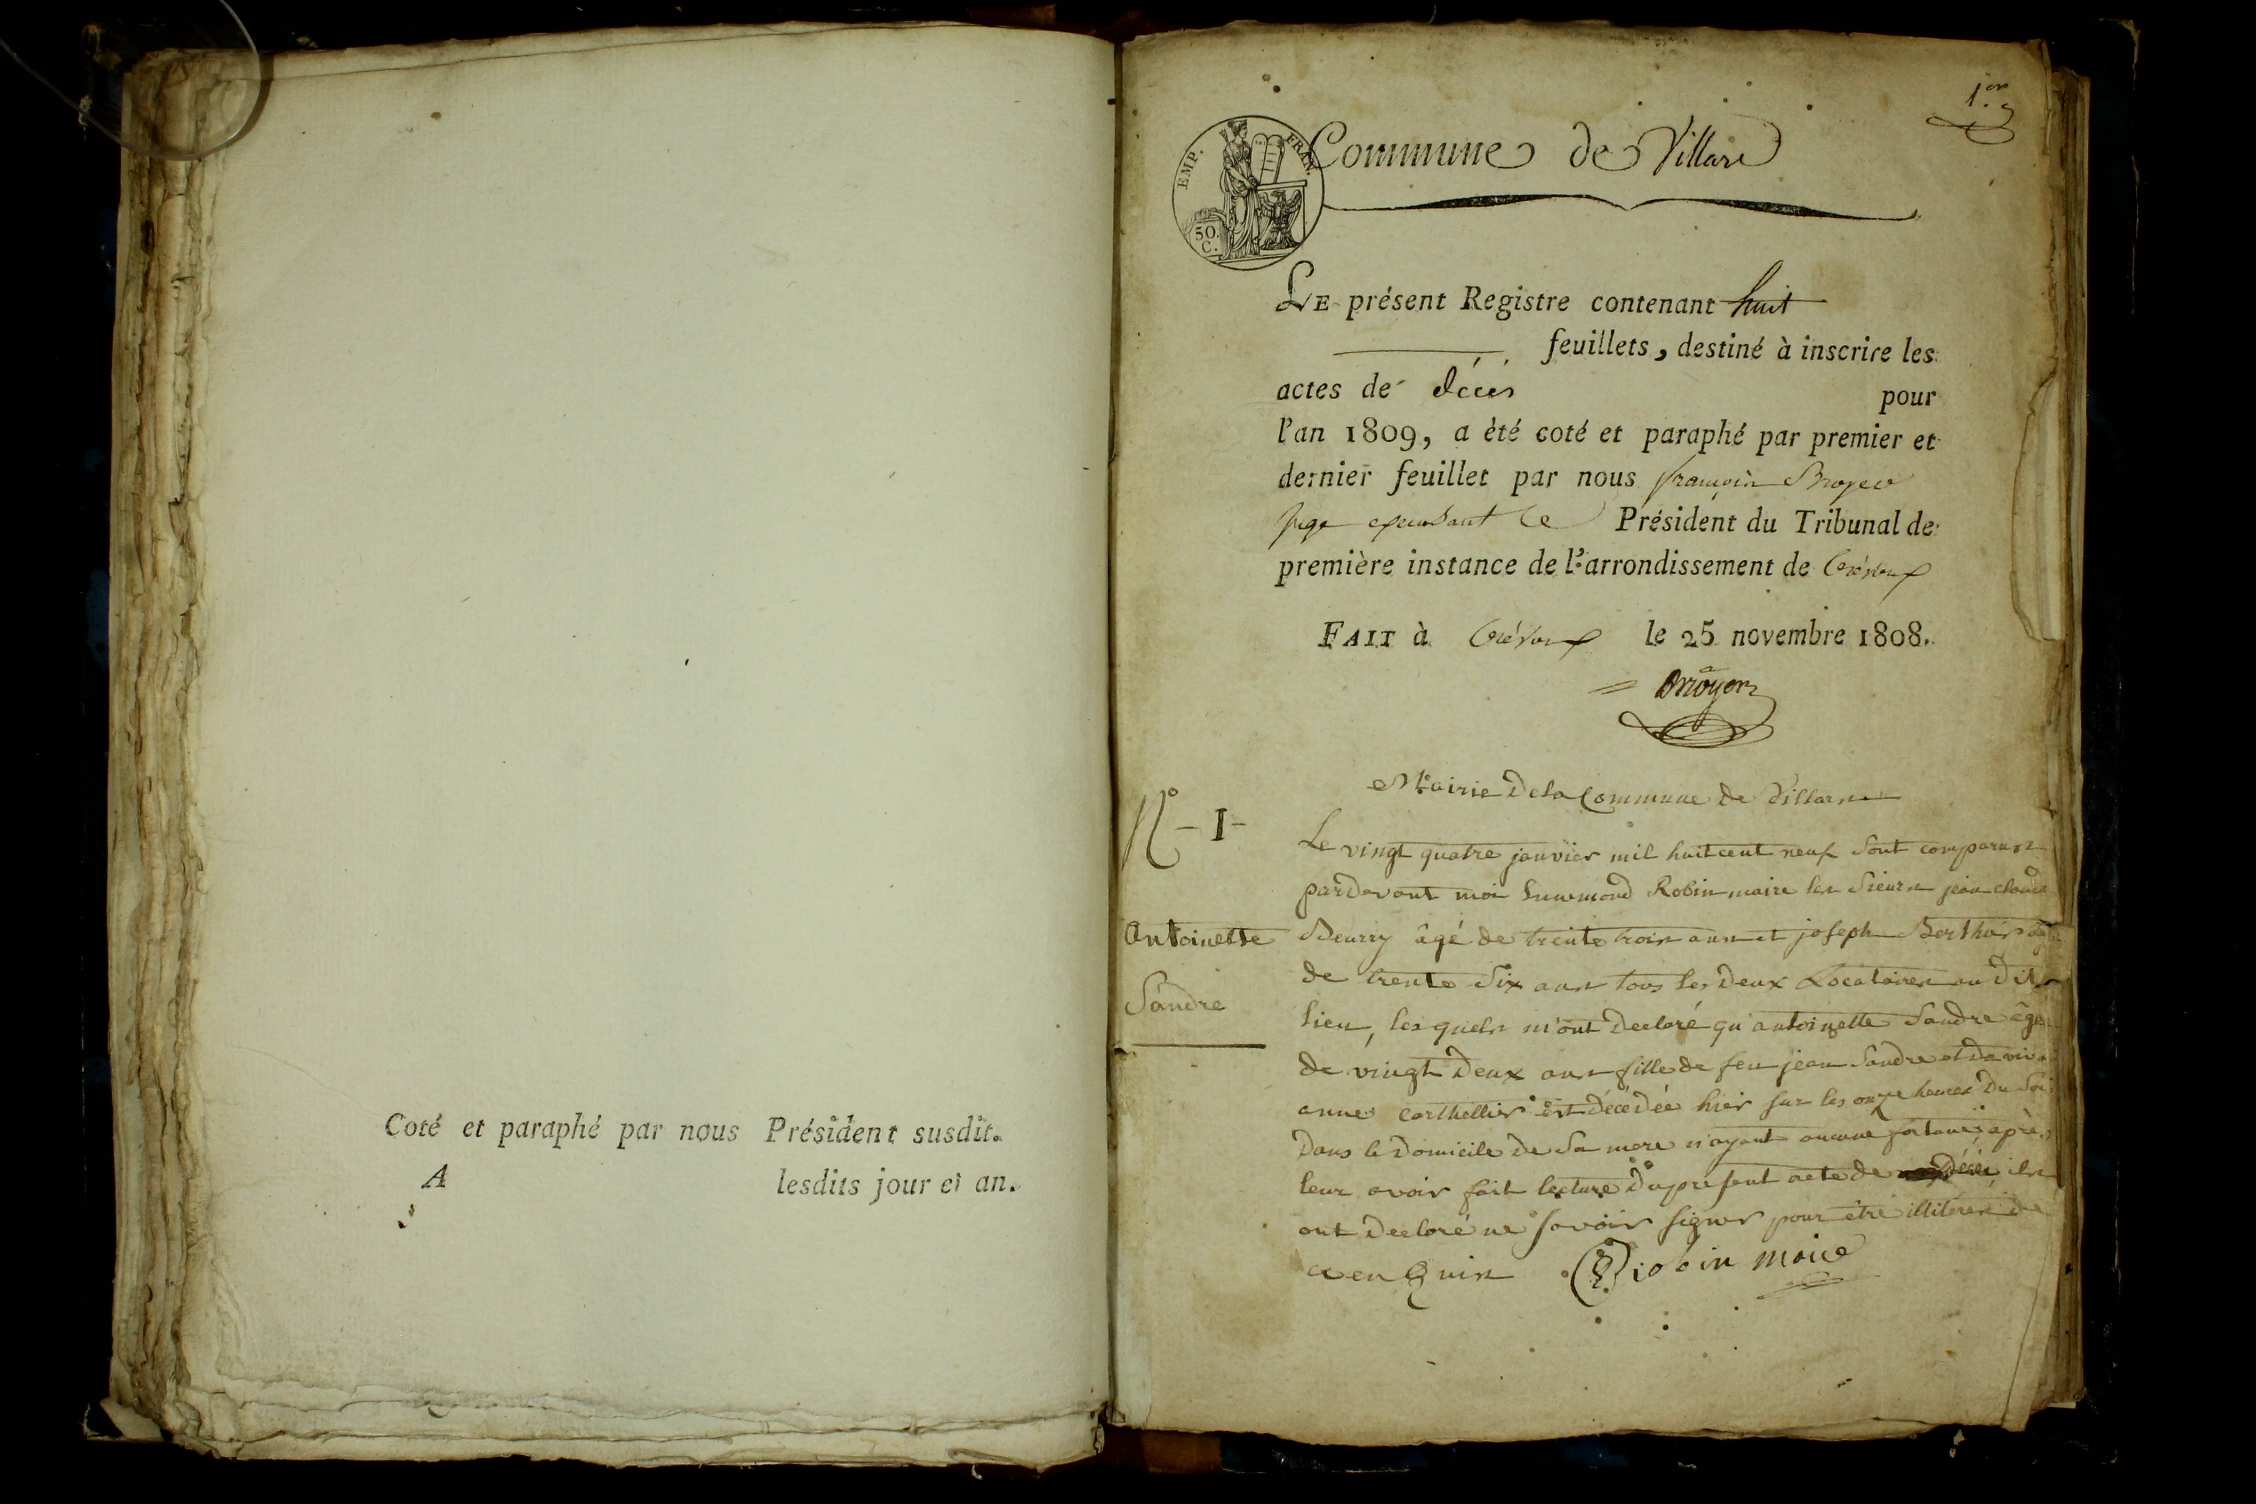 Coté et paraphé par nous Président susdit.
A lesdits jour et an.
1er
EMP. FRAN.
50.
C.
Commune de Villars
LE présent Registre contenant huit
feuillets, destiné à inscrire les
actes de décès pour
l'an 1809, a été coté et paraphé par premier et
dernier feuillet par nous françois
juge Président du Tribunal de
première instance de l'arrondissement de Trévoux
FAIT à Trévoux le 25 novembre 1808.
Mairie De la Commune de Villars
N° - I -
Antoinette
Sandre
Le vingt quatre janvier mil huit cent neuf sont comparus
pardevant moi Robin maire les Sieurs jean claude
Beurry âgé de trente trois ans et joseph Berthier agé
de trente Six ans tous les Deux Locataires au Dit
lieu, les quels m'ont Declaré qu'antoinette Sandre âgée
de vingt Deux ans fille de feu jean Sandre et De vivante
anne est décédée hier sur les onze heures Du Soir
Dans le Domicile De Sa mere n'ayant aucune fortune, après
leur avoir fait lecture Du present acte de Décès, ils
ont Declaré ne savoir signer pour être illiterés de
ce enquis Robin maire